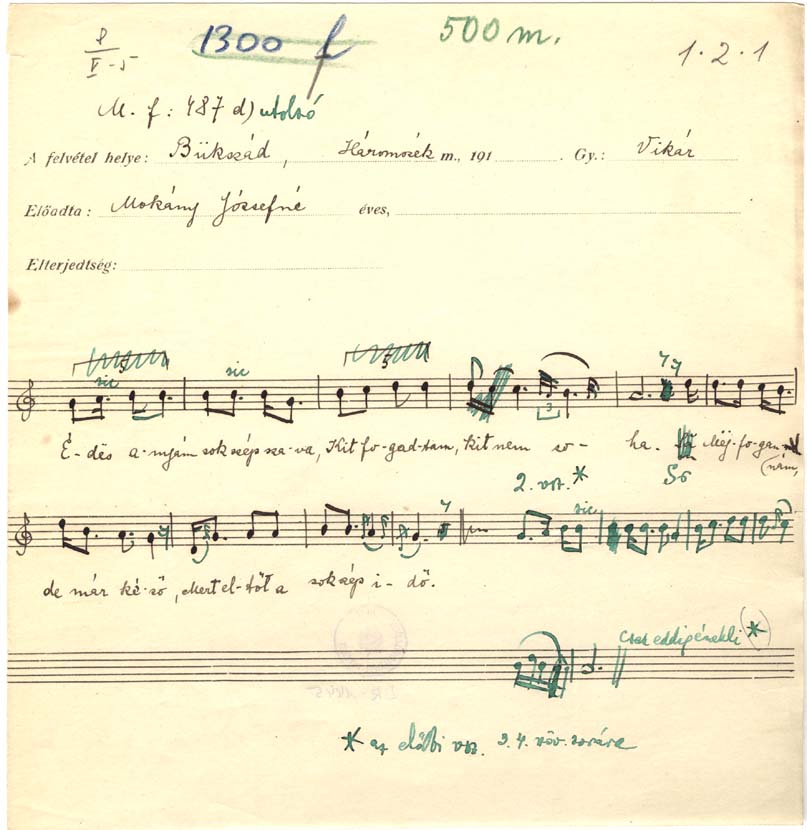 1300 f 500 m. 1.2.1
M. f: 487 d) utolsó
A felvétel helye: Bükszád, Háromszék m., 191 . Gy.: Vikár
Előadta: Mokány Józsefné éves,
Elterjedtség:
5 sic sic 5 3
É-dës a-nyám sok szép sza-va, Kit fo-gad-tam, kit nem so- ha. Mëj-fo-gan-
nám,
2. vsz. *
sic
de már ké-ső, Mert el-tőt a sok szép i-dő.
Csak eddig énekli (*)
* az előbbi vsz. 3.4. szöv. sorára